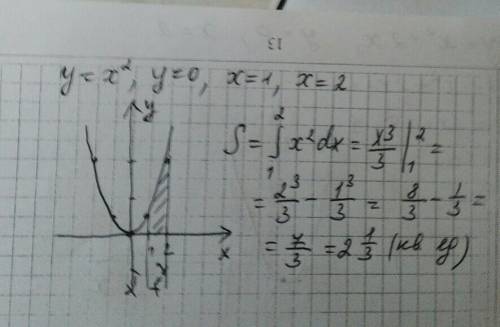 13
y = x², y=0, x=1, x=2
y
S = ∫₁² x² dx = x³/3 |₁² =
= 2³/3 - 1³/3 = 8/3 - 1/3 =
= 7/3 = 2 1/3 (кв ед)
x
x=1
x=2